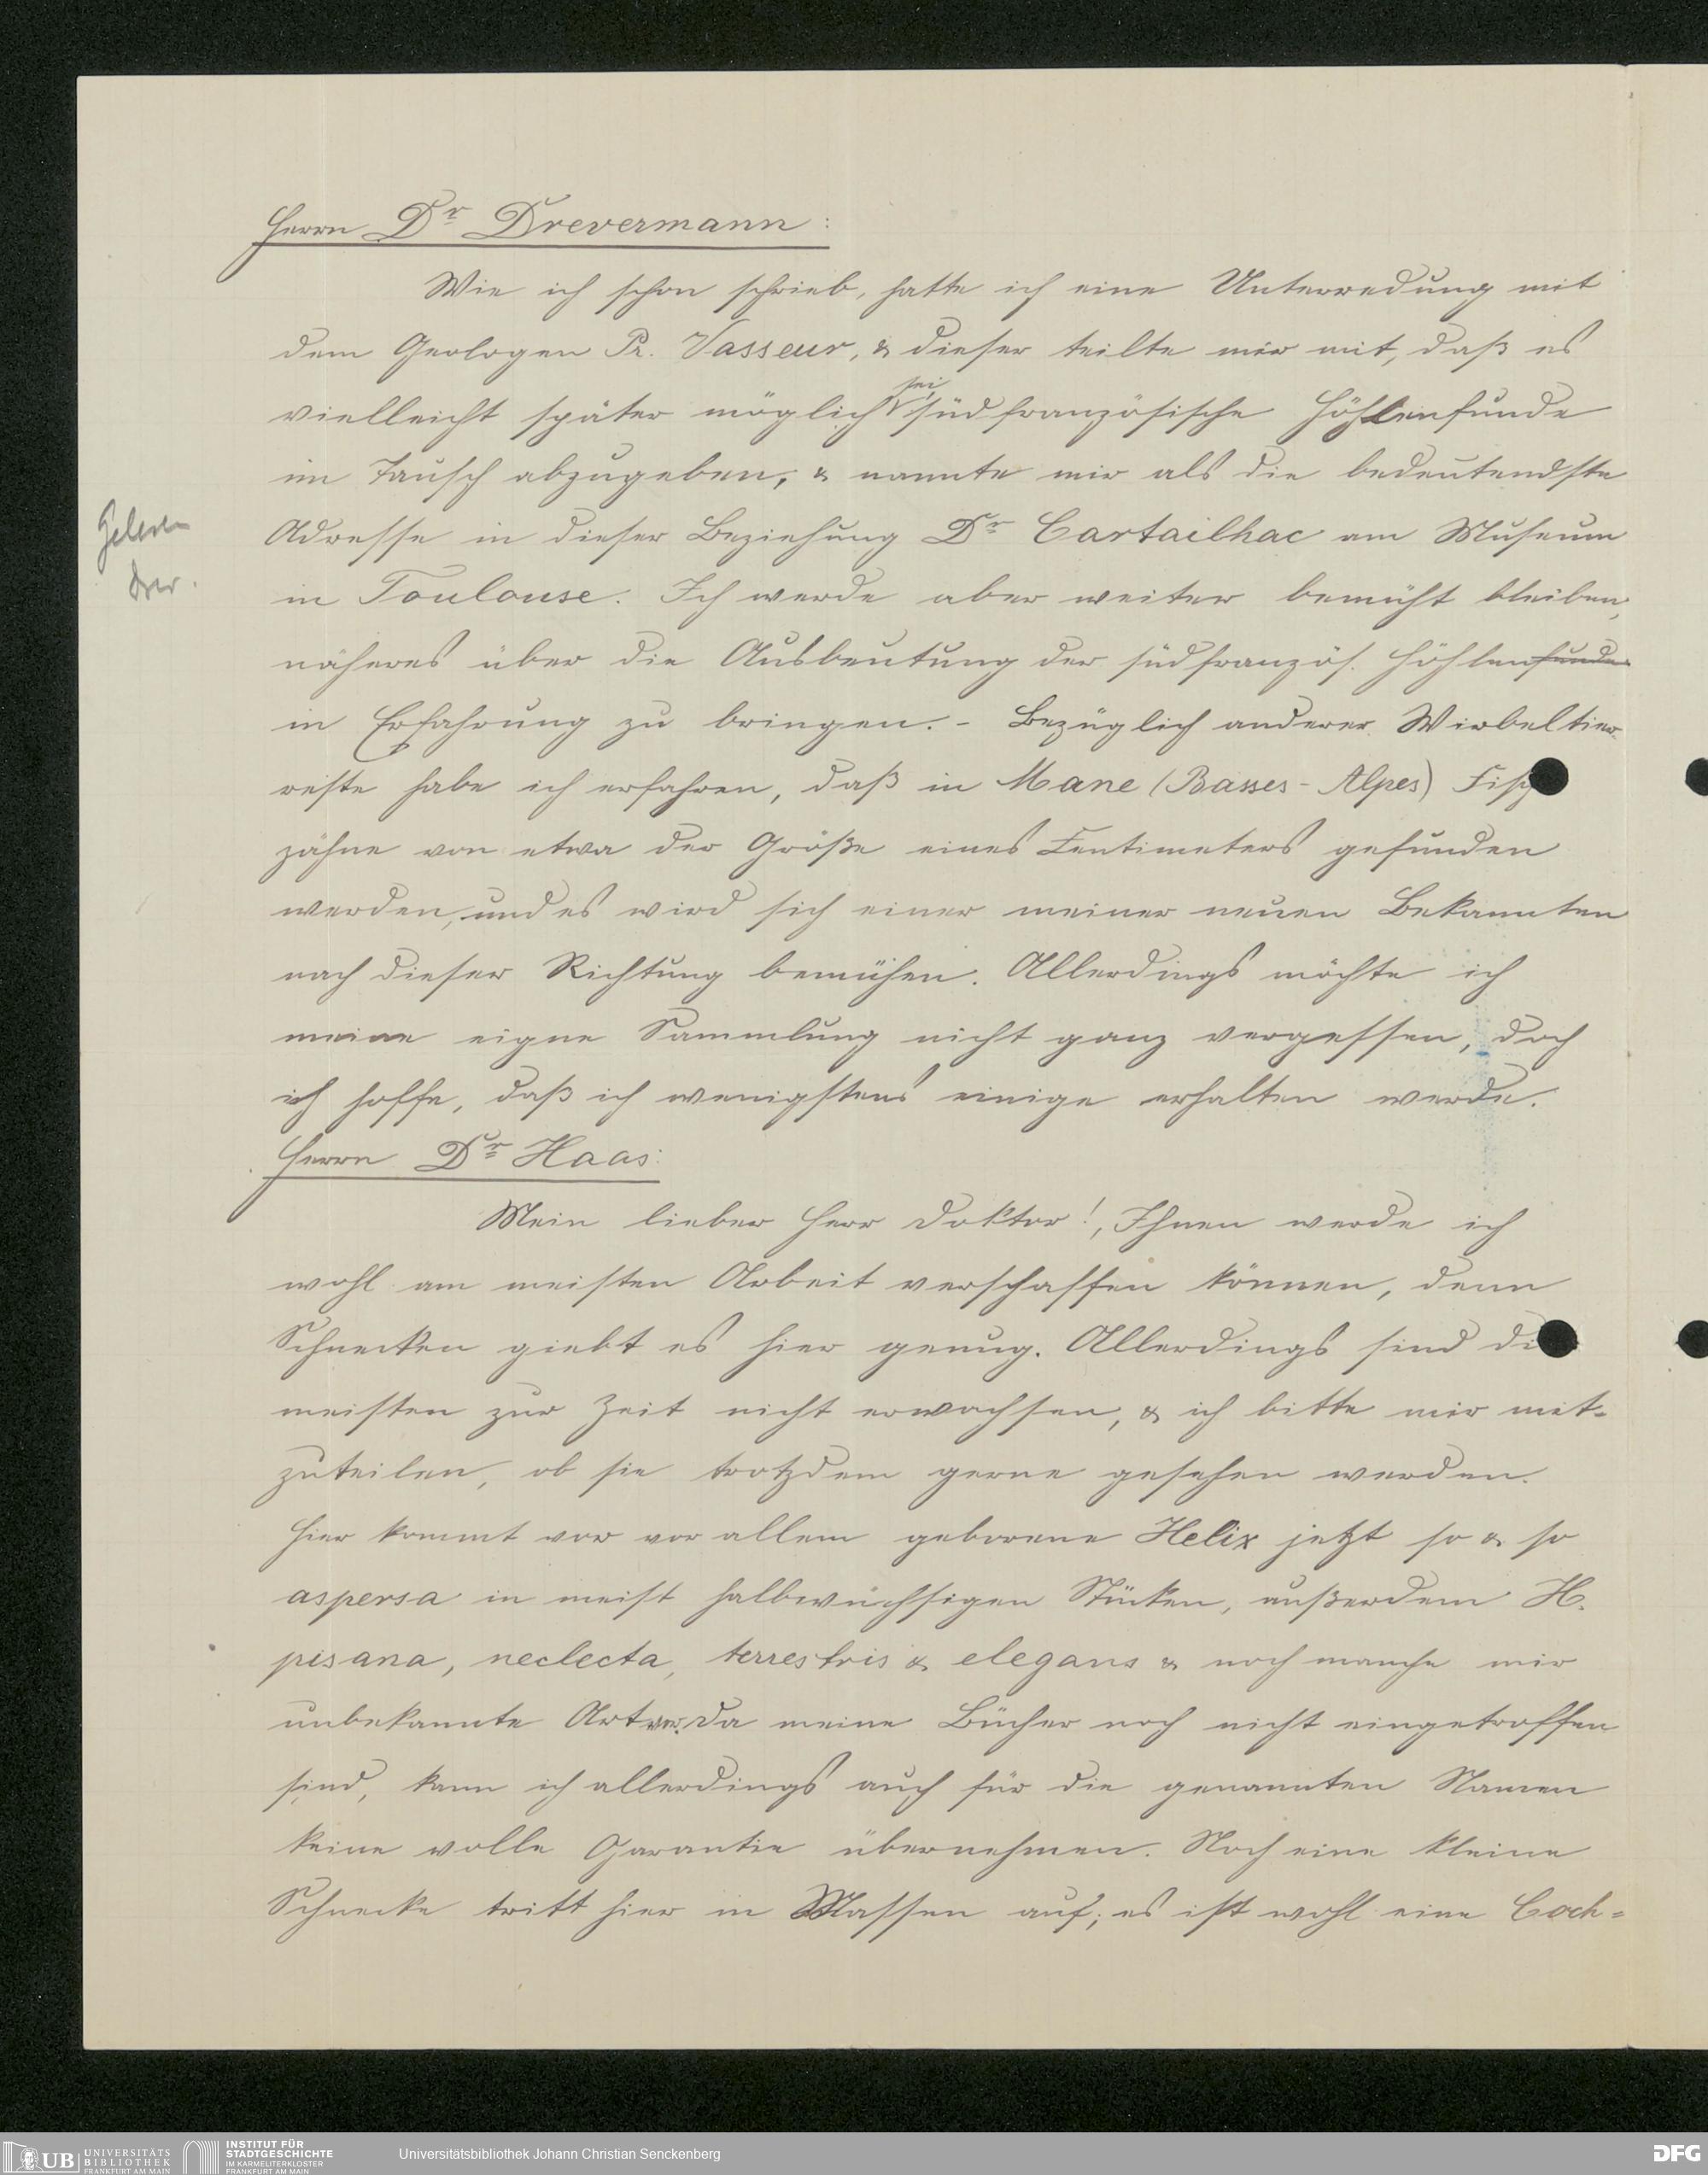 Herrn Dr Drevermann:
Wie ich schon schrieb, hatte ich eine Unterredung mit
dem Geologen Pr. Vasseur, & dieser teilte mir mit, daß es
sei
vielleicht später möglich südfranzösische Höhlenfunde
im Tausch abzugeben, & nannte mir als die bedeutendste
Gelesen
Adresse in dieser Beziehung Dr Cartailhac am Museum
Drev.
in Toulouse. Ich werde aber weiter bemüht bleiben,
näheres über die Ausbeutung der südfranzös. Höhlenfunde
in Erfahrung zu bringen. - Bezüglich anderer Wirbeltier-
reste habe ich erfahren, daß in Mane (Basses-Alpes) Fisch
zähne von etwa der Größe eines Centimeters gefunden
werden, und es wird sich einer meiner neuen Bekannten
nach dieser Richtung bemühen. Allerdings möchte ich
meine eigne Sammlung nicht ganz vergessen, doch
ich hoffe, daß ich wenigstens einige erhalten werde.
Herrn Dr Haas:
Mein lieber Herr Doktor!, Ihnen werde ich
wohl am meisten Arbeit verschaffen können, denn
Schnecken giebt es hier genug. Allerdings sind die
meisten zur Zeit nicht erwachsen, & ich bitte mir mit-
zuteilen, ob sie trotzdem gerne gesehen werden.
Hier kommt vor vor allem geborene Helix jetzt so & so
aspersa in meist halbwüchsigen Stücken, außerdem H.
pisana, neclecta, terrestris & elegans & noch manche mir
unbekannte Art vor. Da meine Bücher noch nicht eingetroffen
sind, kann ich allerdings auch für die genannten Namen
keine volle Garantie übernehmen. Noch eine kleine
Schnecke tritt hier in Massen auf; es ist wohl eine Coch-
UB UNIVERSITÄTS
BIBLIOTHEK
FRANKFURT AM MAIN
INSTITUT FÜR
STADTGESCHICHTE
IM KARMELITERKLOSTER
FRANKFURT AM MAIN
Universitätsbibliothek Johann Christian Senckenberg
DFG